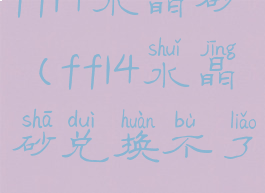 ff14水晶砂
shuǐ jīng
(ff14水晶
shā duì huàn bù liǎo
砂兑换不了